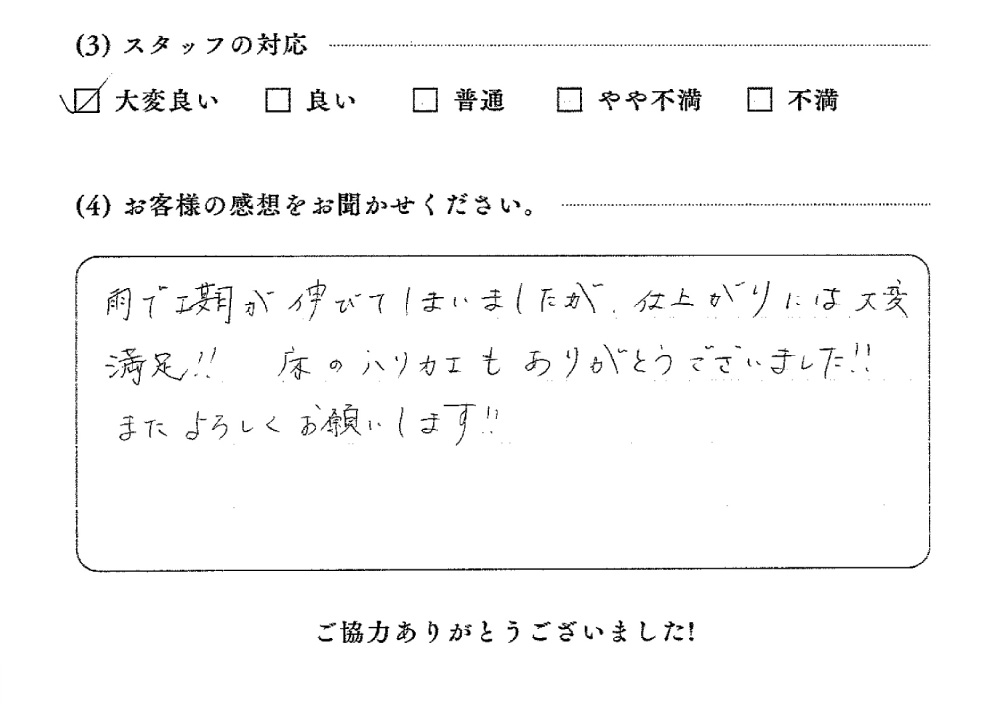 (3) スタッフの対応
☑ 大変良い □ 良い □ 普通 □ やや不満 □ 不満
(4) お客様の感想をお聞かせください。
雨で工期が伸びてしまいましたが、仕上がりには大変
満足!! 床のハリカエもありがとうございました!!
またよろしくお願いします!!
ご協力ありがとうございました!